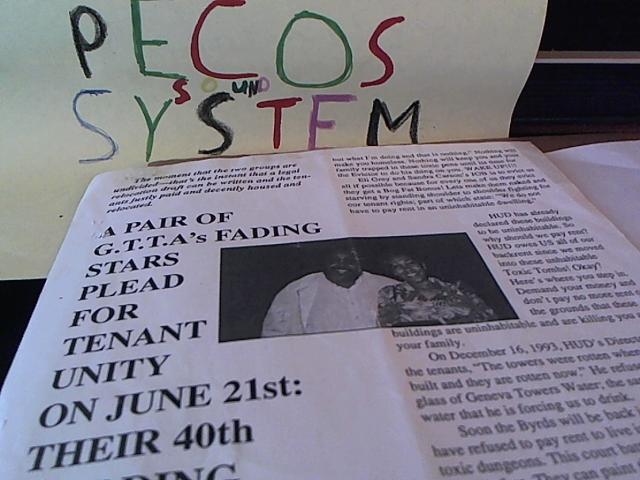 PECOS
SOUND
SYSTEM
The moment that the two groups are
undivided—that's the instant that a legal
relocation draft can be written and the ten-
ants justly paid and decently housed and
relocated.
A PAIR OF
G.T.T.A's FADING
STARS
PLEAD
FOR
TENANT
UNITY
ON JUNE 21st:
THEIR 40th
but what I'm doing and that is nothing." Nothing will
make you homeless. Nothing will keep you and your
family trapped in these toxic
the Evictor to do his thing on you. "WAKE UP!!!!"
all if possible because for every one of us they evict
they get a Big Fat Bonus! Lets make them naked and
starving by standing shoulder to shoulder, fighting for
our tenant rights; part of which state: "We do not
have to pay rent in an uninhabitable dwelling."
HUD has already
declared these buildings
to be uninhabitable. So
why should we pay rent?
HUD owes US all of our
backrent since we moved
into these uninhabitable
Toxic Tombs! Okay!
Here's where you step in.
Demand your money and
don't pay no more rent
the grounds that these
buildings are uninhabitable and are killing you
your family.
On December 16, 1993, HUD's Direc
the tenants, "The towers were rotten when
built and they are rotten now." He refused
glass of Geneva Towers Water, the
water that he is forcing us to drink.
Soon the Byrds will be back
have refused to pay rent to live
toxic dungeons. This court
They can paint